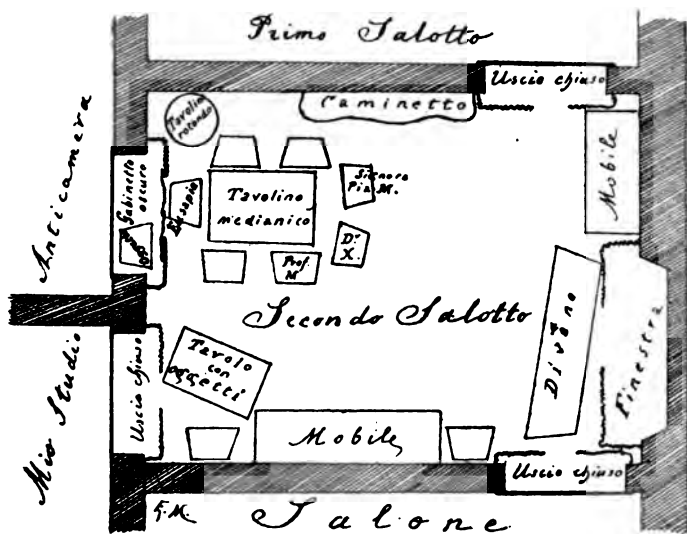 Primo Salotto
Uscio chiuso
Caminetto
Tavolino
rotondo
Mobile
Anticamera
Gabinetto
oscuro
Eusapia
Tavolino
medianico
Signora
Pia M.
Dr
X.
Prof.
M
Secondo Salotto
Divano
Finestra
Mio Studio
Uscio chiuso
Tavolo
con
oggetti
Mobile
Uscio chiuso
F. M.
Salone